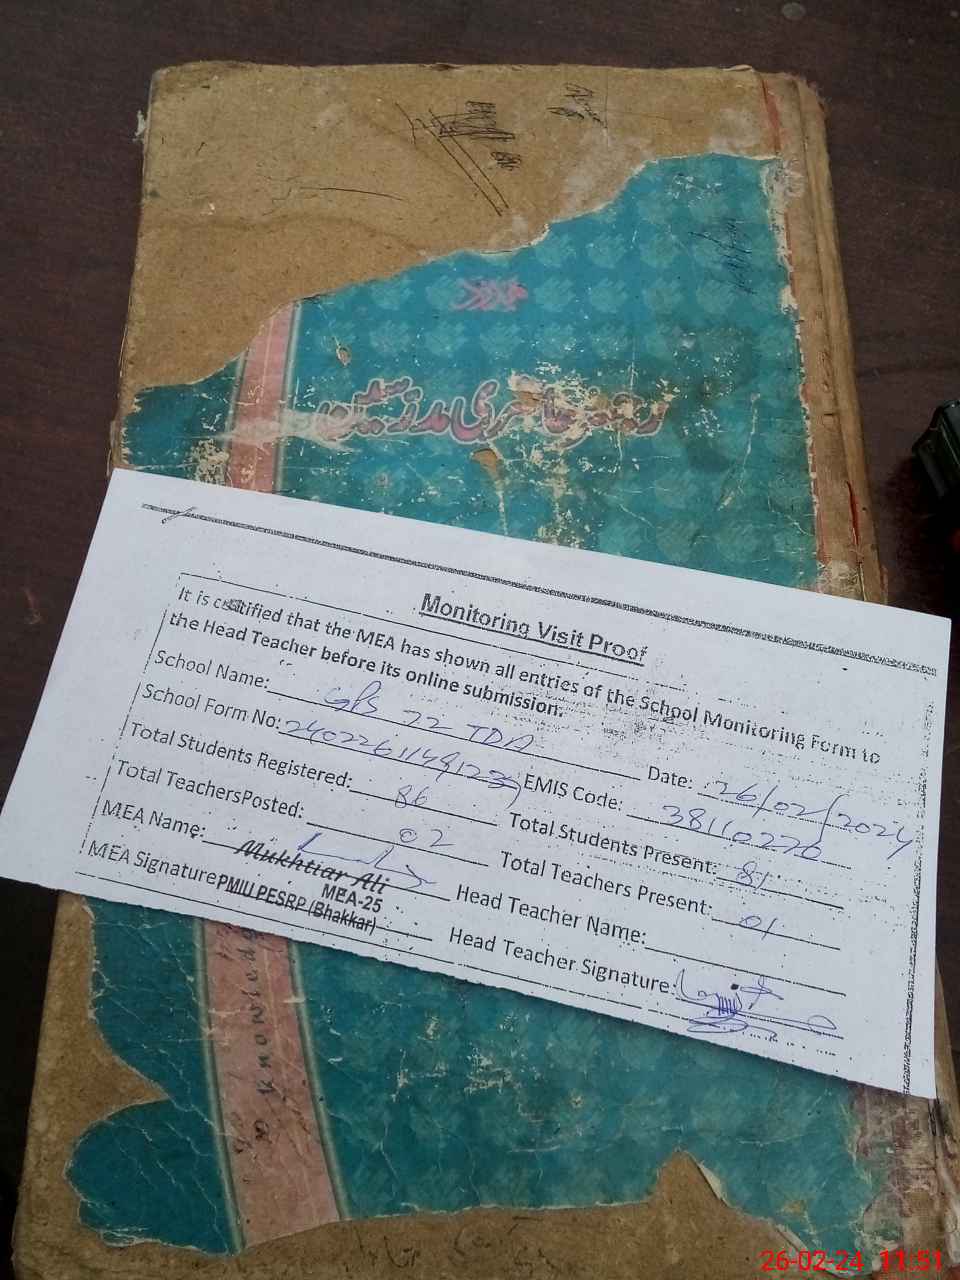 رجسٹر حاضری مدرسین
Monitoring Visit Proof
It is certified that the MEA has shown all entries of the School Monitoring Form to
the Head Teacher before its online submission.
School Name: GPS 72 TDA Date: 26/02/2024
School Form No: EMIS Code: 38110220
Total Students Registered: 86 Total Students Present: 81
Total TeachersPosted: 02 Total Teachers Present: 01
MEA Name: Mukhtiar Ali Head Teacher Name:
MEA-25
MEA Signature PMIU PESRP (Bhakkar) Head Teacher Signature:
knowledge
26-02-24 11:51